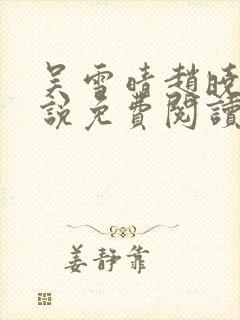 吴雪晴趙曉
說免費閱讀
姜靜靠